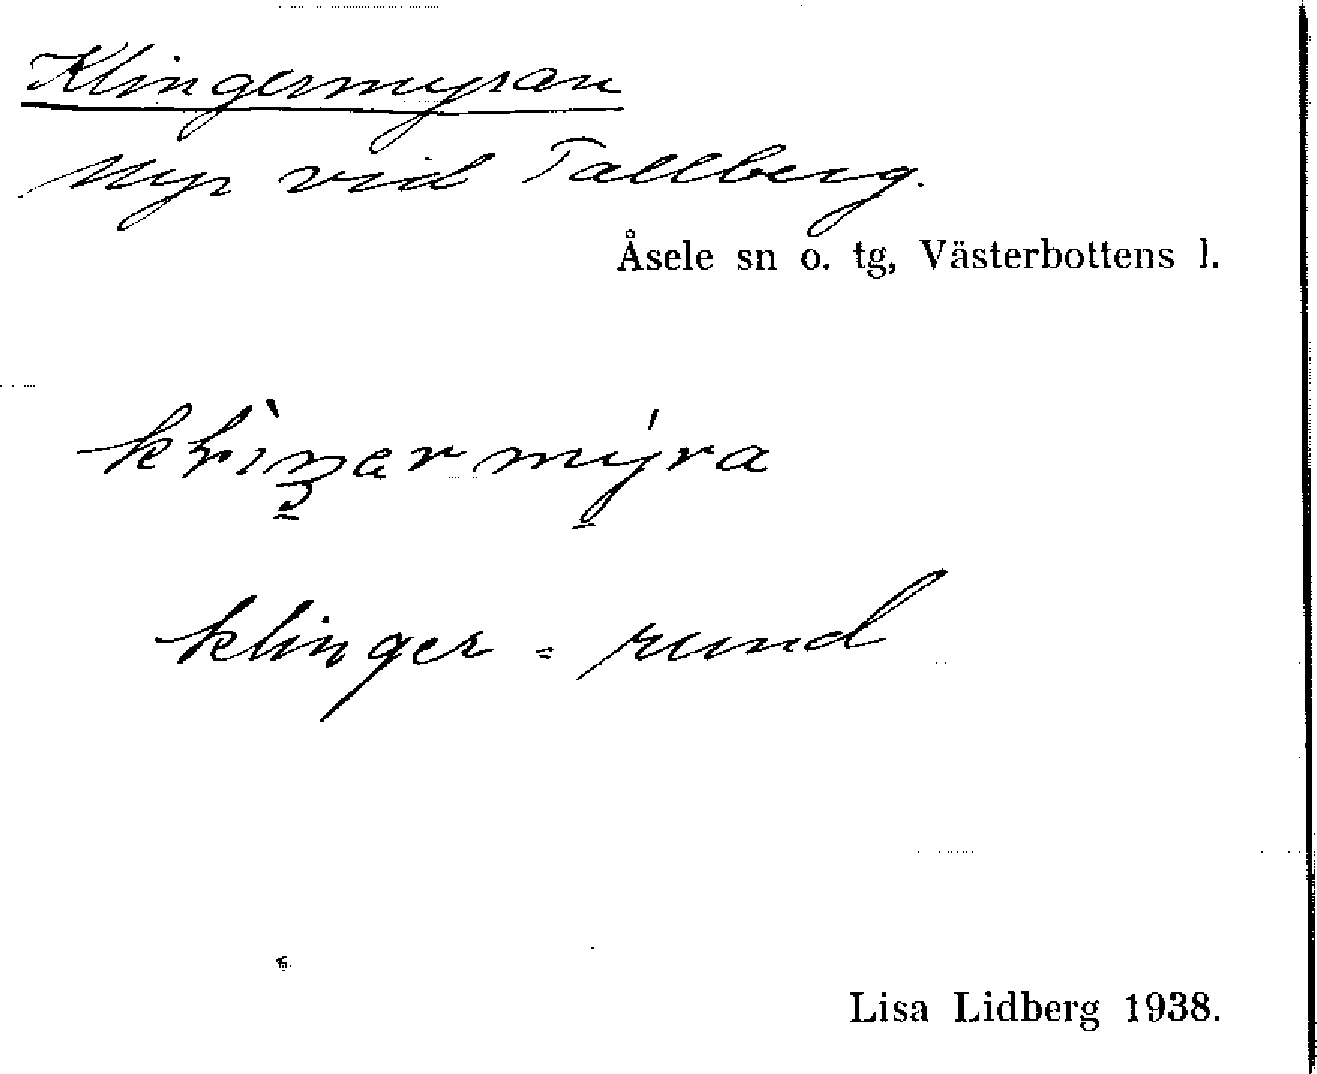 Klingermyran
Myr vid Tallberg.
Åsele sn o. tg, Västerbottens l.
klinger = rund
Lisa Lidberg 1938.